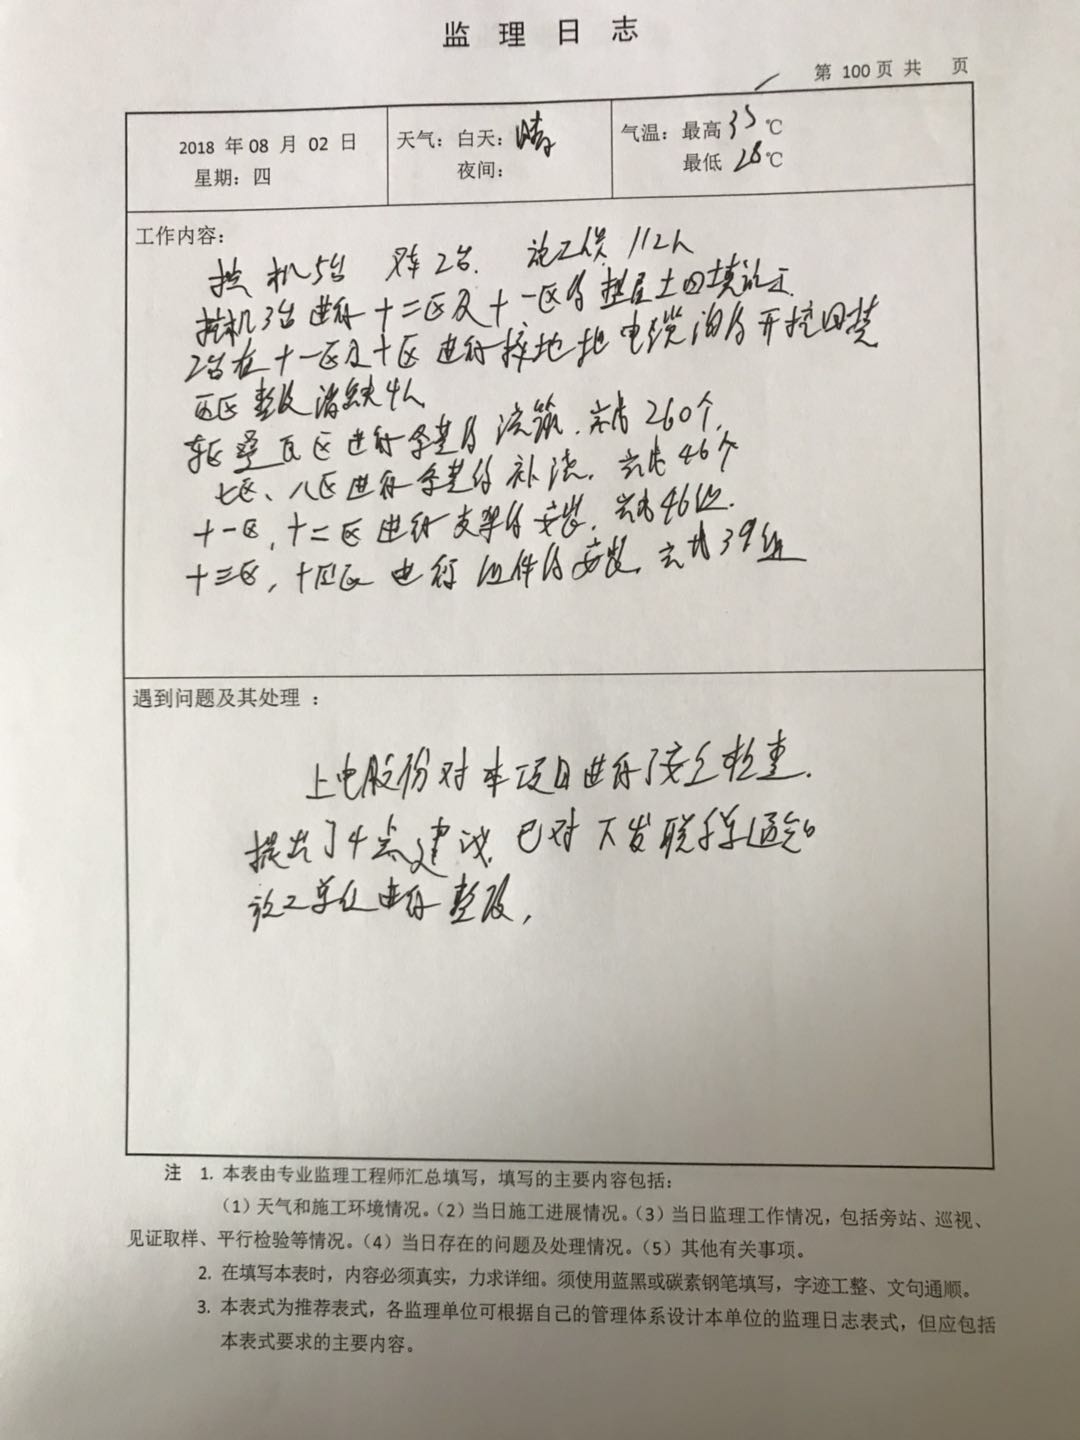 监理日志
第 100 页 共 页
2018 年 08 月 02 日
星期：四
天气：白天：晴
夜间：
气温：最高 35 ℃
最低 28 ℃
工作内容：
挖机5台 2台. 施工人员 112人
挖机3台进行十二区及十一区的 土回填施工.
2台在十一区及十区进行接地 电缆沟的开挖回填
西区整改消缺4人
东区 区进行 基的浇筑. 完成260个,
七区、八区进行 基的补浇. 完成46个
十一区, 十二区进行支架的安装. 完成46组.
十三区, 十四区进行组件的安装. 完成39组
遇到问题及其处理 ：
上电股份对本项目进行了安全检查.
提出了4点建议. 已对 下发联系单通知
施工单位进行整改,
注 1. 本表由专业监理工程师汇总填写，填写的主要内容包括：
（1）天气和施工环境情况。（2）当日施工进展情况。（3）当日监理工作情况，包括旁站、巡视、
见证取样、平行检验等情况。（4）当日存在的问题及处理情况。（5）其他有关事项。
2. 在填写本表时，内容必须真实，力求详细。须使用蓝黑或碳素钢笔填写，字迹工整、文句通顺。
3. 本表式为推荐表式，各监理单位可根据自己的管理体系设计本单位的监理日志表式，但应包括
本表式要求的主要内容。